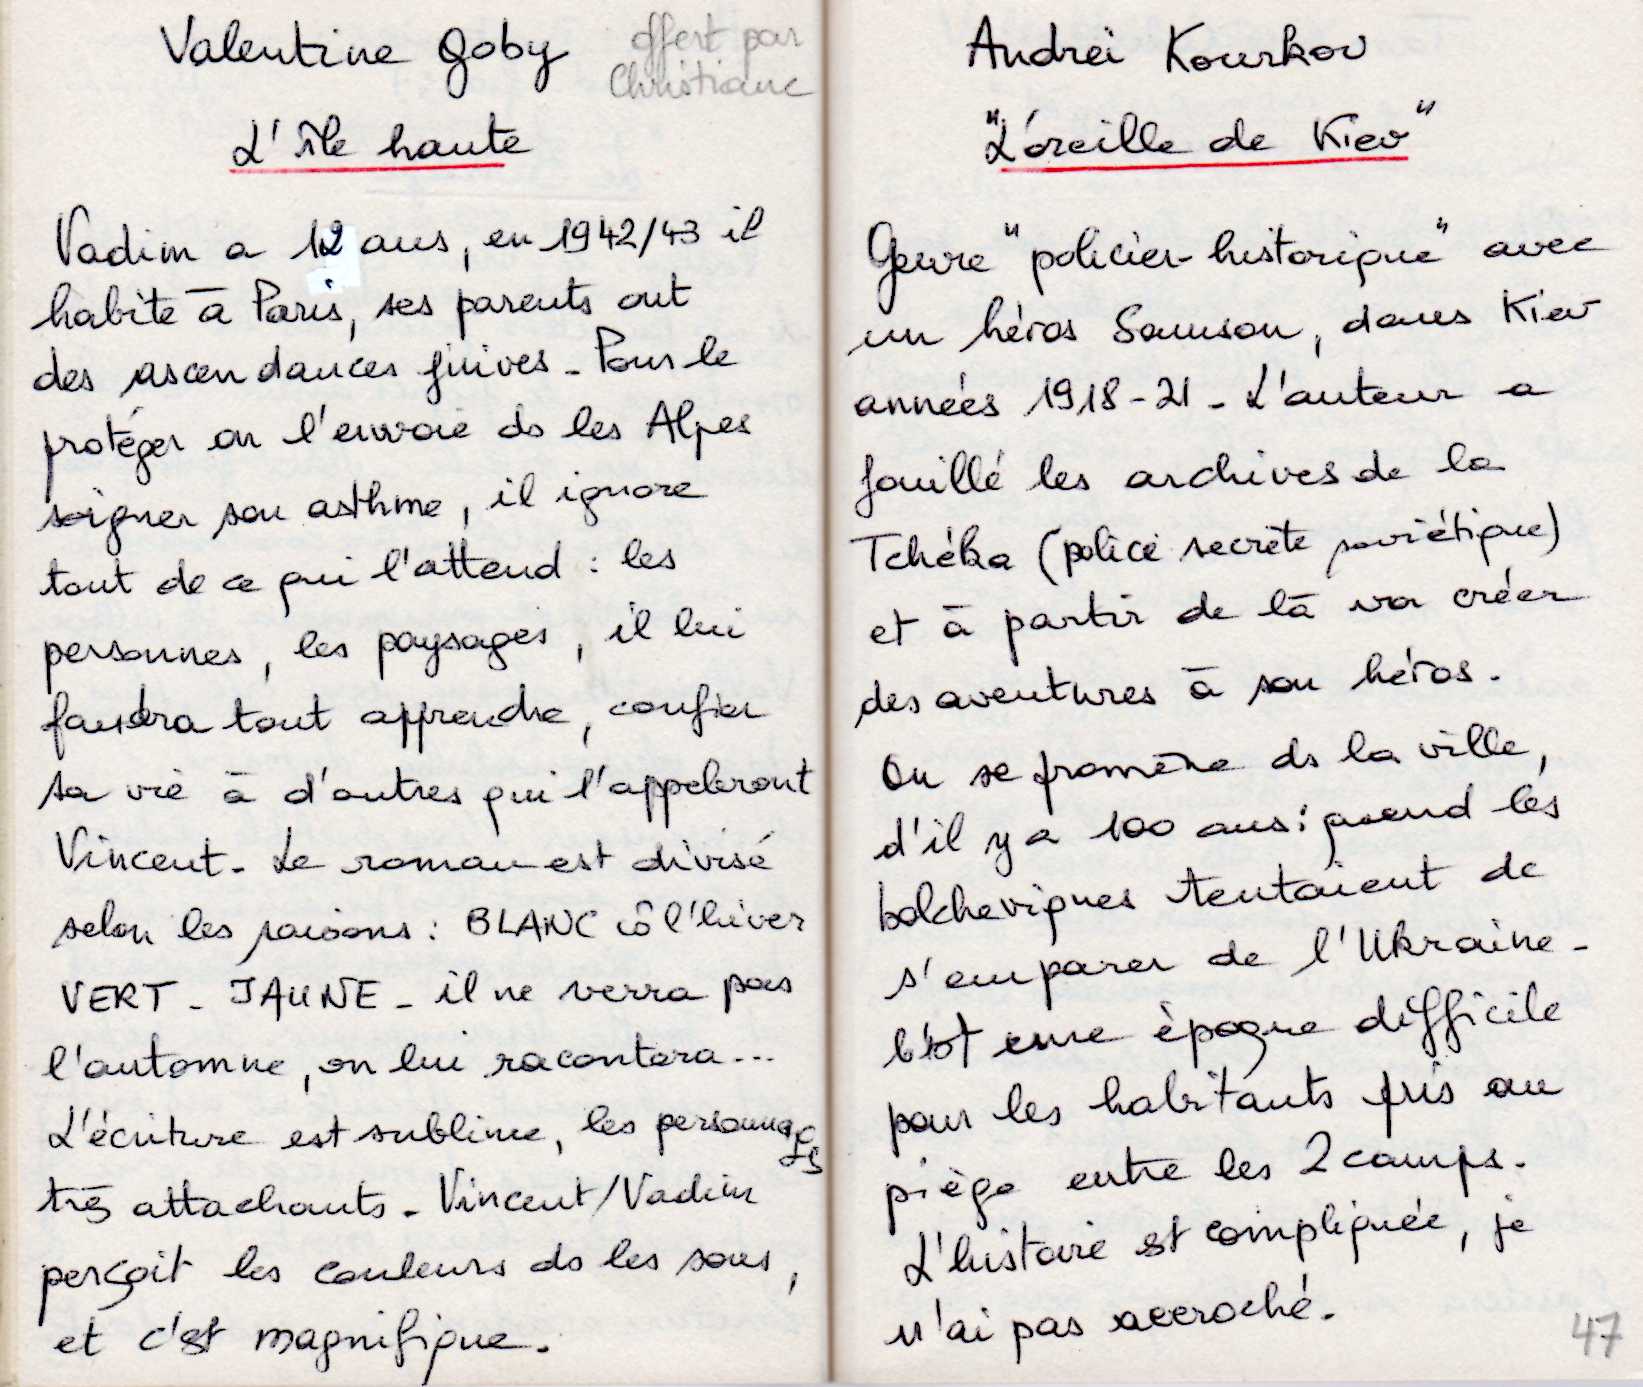 Valentine Goby
offert par
Christiane
L'île haute
Vadim a 12 ans, en 1942/43 il
habite à Paris, ses parents ont
des ascendances juives - Pour le
protéger on l'envoie ds les Alpes
soigner son asthme, il ignore
tout de ce qui l'attend : les
personnes, les paysages, il lui
faudra tout apprendre, confier
sa vie à d'autres qui l'appeleront
Vincent. Le roman est divisé
selon les saisons : BLANC cô l'hiver
VERT - JAUNE - il ne verra pas
l'automne, on lui racontera...
L'écriture est sublime, les personnages
très attachants. Vincent/Vadim
perçoit les couleurs ds les sons,
et c'est magnifique.
Andreï Kourkov
"L'oreille de Kiev"
Genre "policier-historique" avec
un héros Samson, dans Kiev
années 1918-21 - L'auteur a
fouillé les archives de la
Tchéka (police secrète soviétique)
et à partir de là va créer
des aventures à son héros.
On se promène ds la ville,
d'il y a 100 ans : quand les
bolcheviques tentaient de
s'emparer de l'Ukraine -
C'est une époque difficile
pour les habitants pris au
piège entre les 2 camps.
L'histoire est compliquée, je
n'ai pas accroché.
47